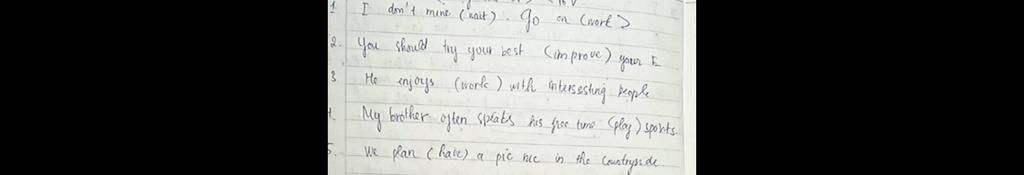 1. I don't mine (wait). go on (work)
2. You should try your best (improve) your E
3. He enjoys (work) with interesting people
4. My brother often speaks his free time (play) sports.
5. We plan (have) a pic nic in the countryside